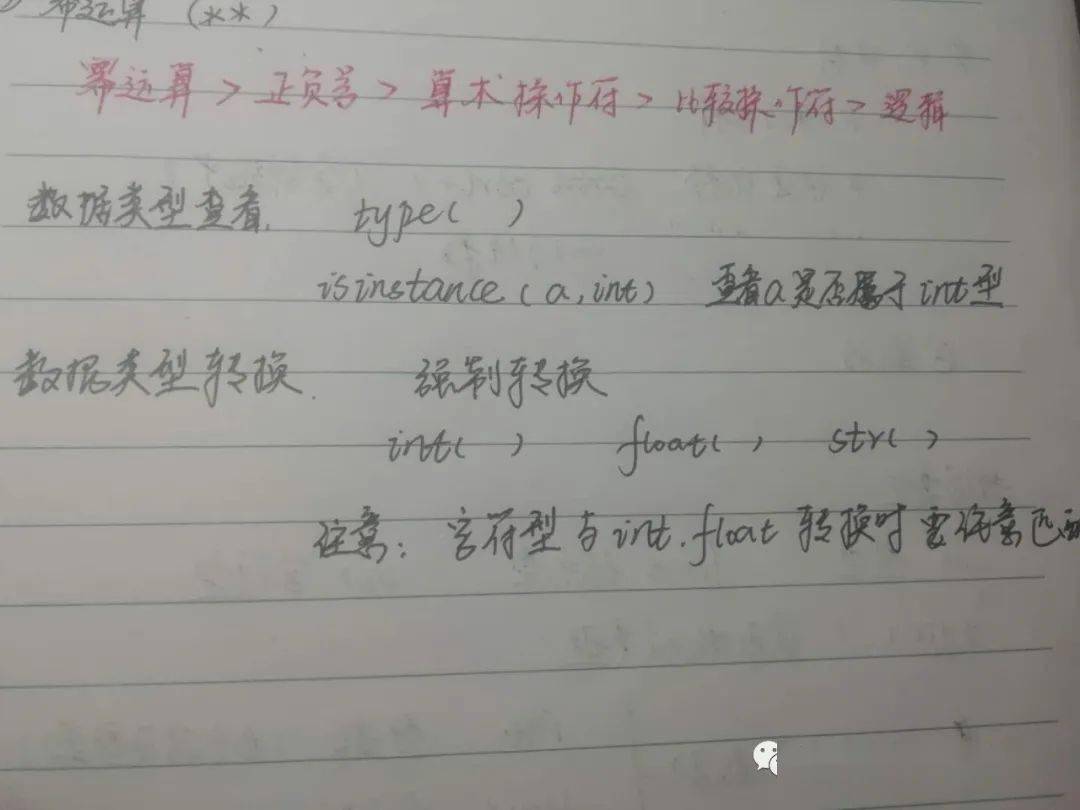 幂运算 (**)
幂运算 > 正负号 > 算术操作符 > 比较操作符 > 逻辑
数据类型查看. type( )
isinstance(a,int) 查看a是否属于int型
数据类型转换. 强制转换
int( ) float( ) str( )
注意: 字符型与int.float 转换时要注意匹